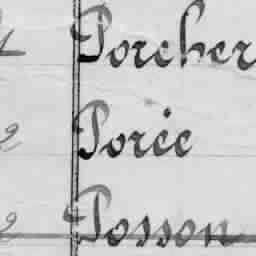 Porcher
Porée
Posson